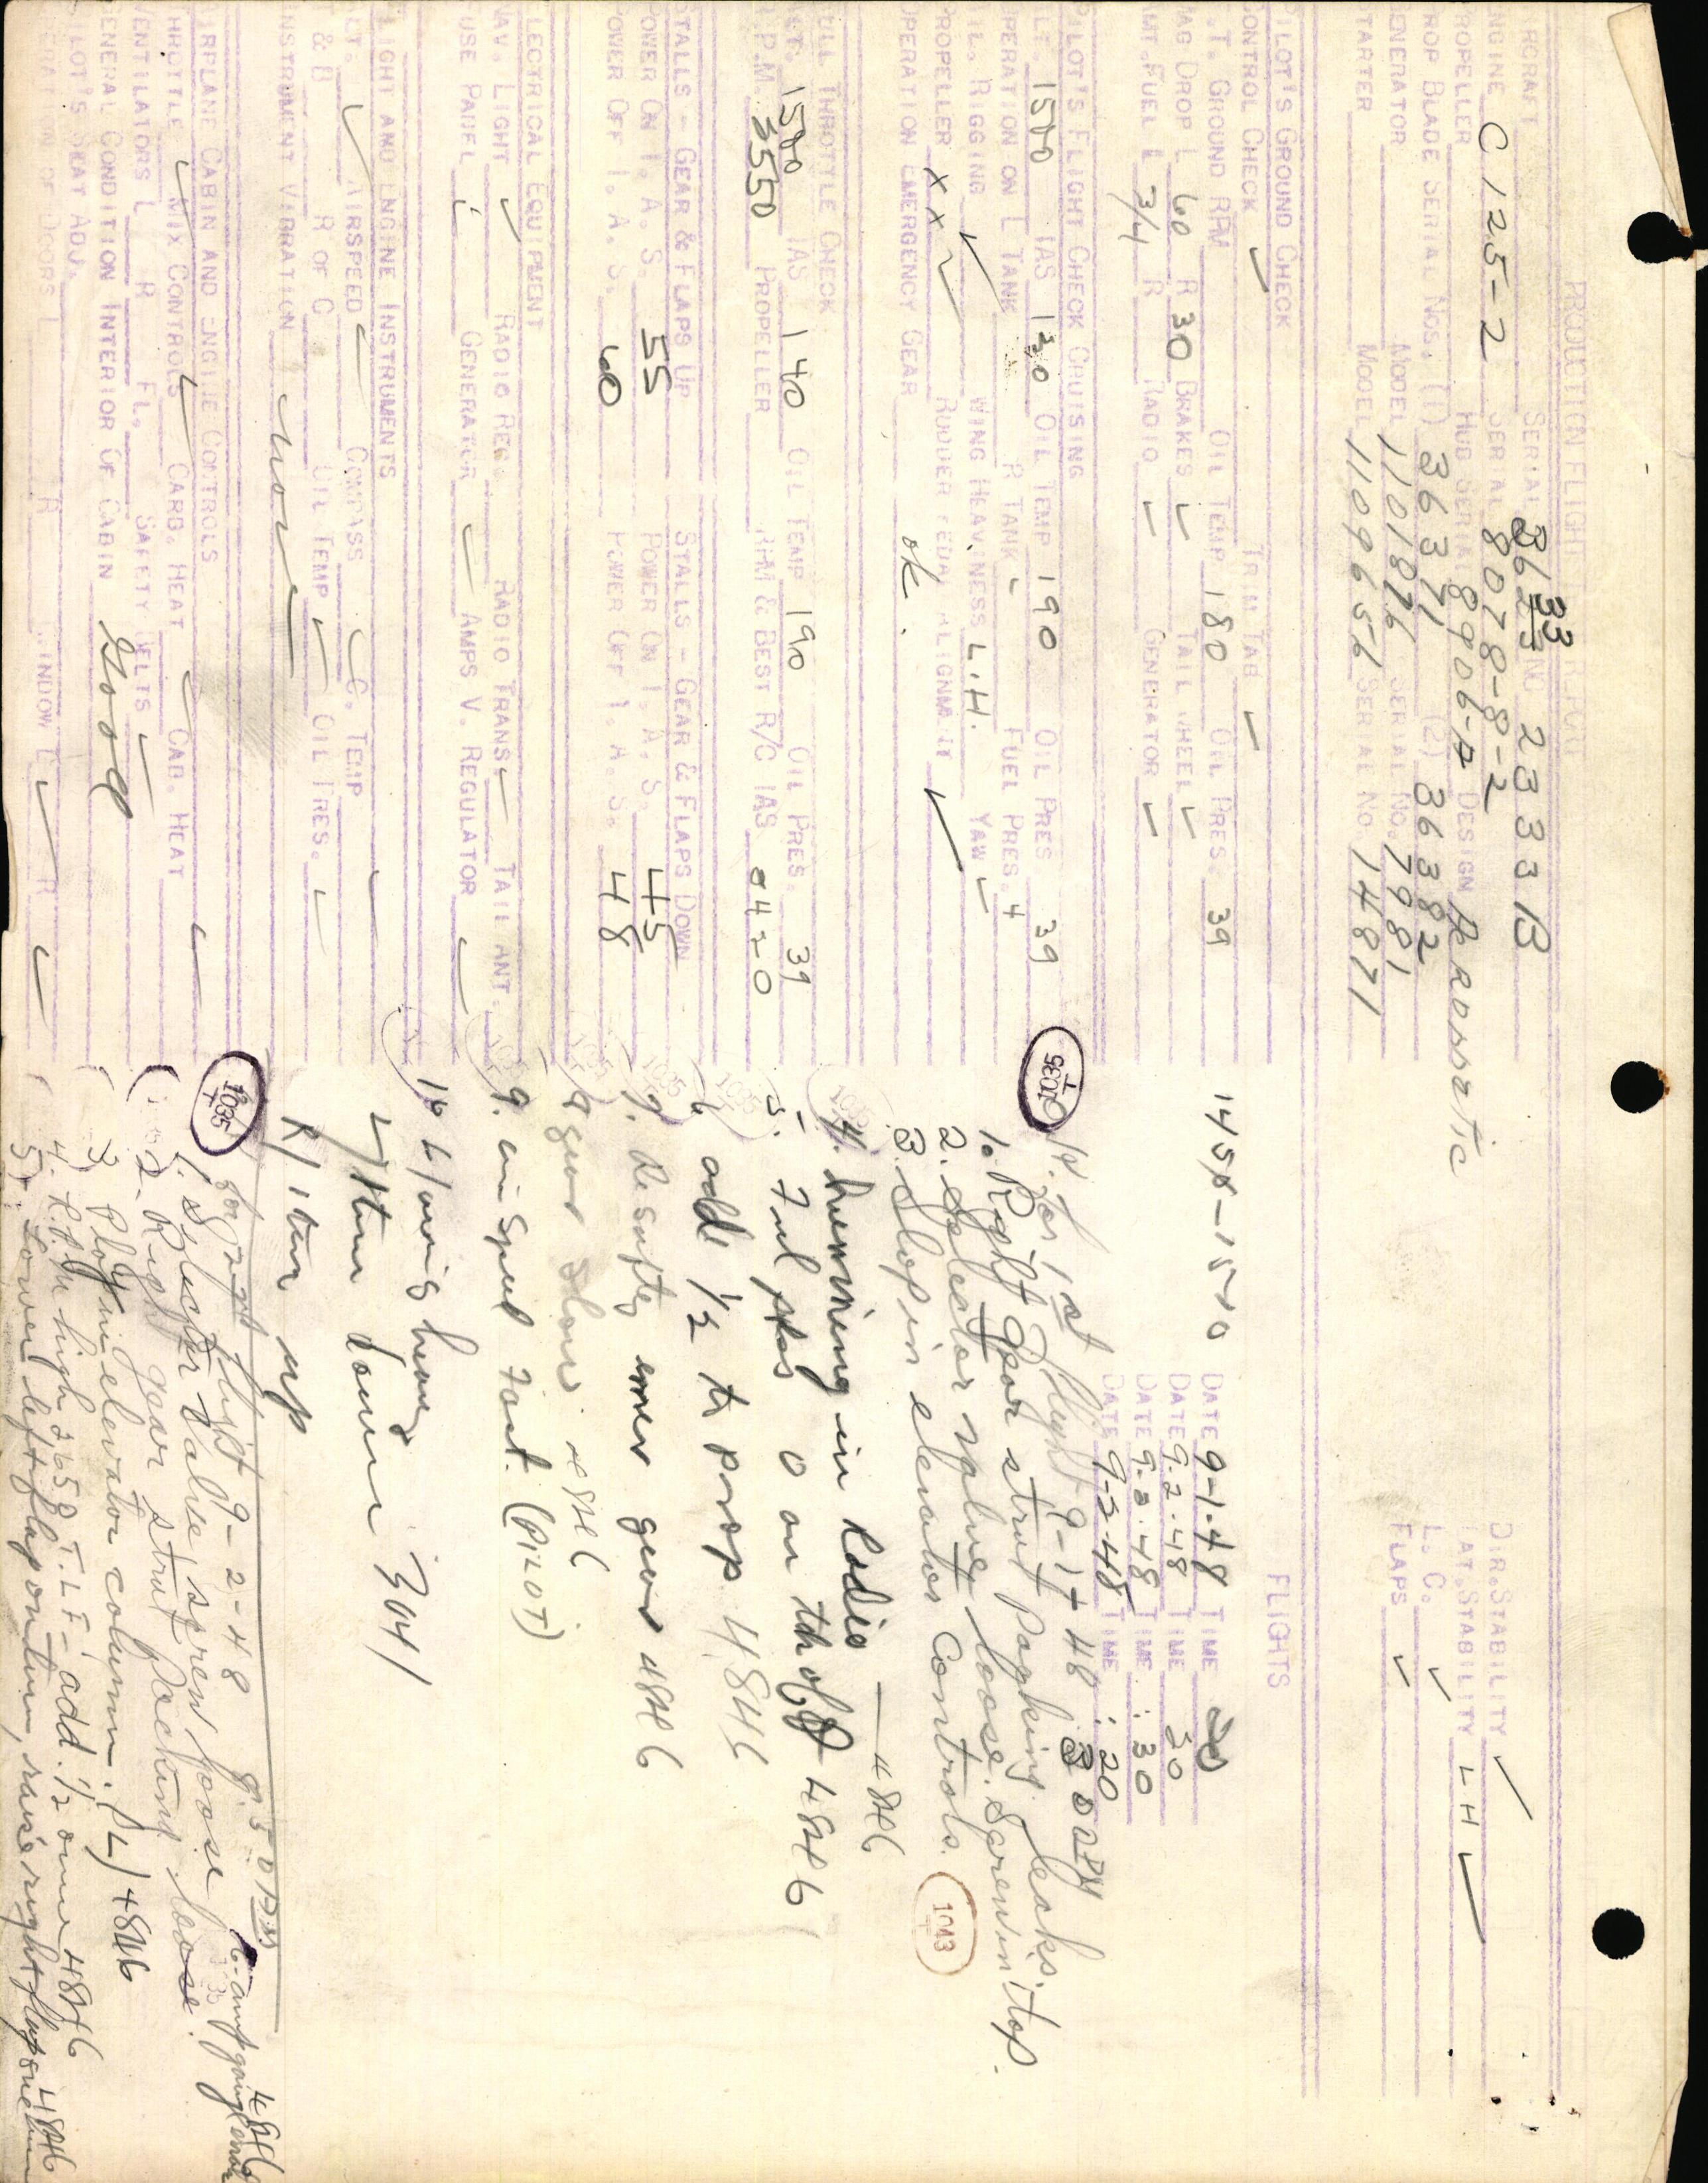 PRODUCTION FLIGHT REPORT
AIRCRAFT SERIAL 3633 NC 2333B
ENGINE C125-2 SERIAL 8078-8-2
PROPELLER HUB SERIAL 8906-A DESIGN Aeromatic
PROP BLADE SERIAL NOS. (1) 36371 (2) 36382
GENERATOR MODEL 1101876 SERIAL NO. 7981
STARTER MODEL 1109656 SERIAL NO. 14871
DIR. STABILITY ✓
LAT. STABILITY LH ✓
L. G. ✓
FLAPS ✓
PILOT'S GROUND CHECK
CONTROL CHECK ✓ TRIM TAB ✓
FLIGHTS
S.T. GROUND RPM OIL TEMP 180 OIL PRES. 39 DATE 9-1-48 TIME
MAG DROP L 60 R 30 BRAKES ✓ TAIL WHEEL ✓ DATE 9.2.48 TIME 30
AMT. FUEL L 3/4 R RADIO ✓ GENERATOR ✓ DATE 9.2.48 TIME :30
DATE 9-2-48 TIME :20
PILOT'S FLIGHT CHECK CRUISING
ALT. 1500 IAS 130 OIL TEMP 190 OIL PRES 39
OPERATION ON L TANK ✓ R TANK - FUEL PRES. 4
TAIL RIGGING WING HEAVINESS L.H. YAW ✓
PROPELLER XX ✓ RUDDER PEDAL ALIGNMENT ✓
OPERATION EMERGENCY GEAR ok.
FULL THROTTLE CHECK
ALT. 1500 IAS 140 OIL TEMP 190 OIL PRES. 39
R.P.M. 3550 PROPELLER RPM & BEST R/C IAS
STALLS - GEAR & FLAPS UP STALLS - GEAR & FLAPS DOWN
POWER ON I.A.S. 55 POWER ON I.A.S. 45
POWER OFF I.A.S. 60 POWER OFF I.A.S. 48
ELECTRICAL EQUIPMENT
NAV. LIGHT ✓ RADIO REC. RADIO TRANS ✓ TAIL ANT.
FUSE PANEL GENERATOR ✓ AMPS V. REGULATOR ✓
FLIGHT AND ENGINE INSTRUMENTS
ALT. ✓ AIRSPEED ✓ COMPASS ✓ C. TEMP ✓
T & B R OF C OIL TEMP ✓ OIL PRES. ✓
INSTRUMENT VIBRATION none
AIRPLANE CABIN AND ENGINE CONTROLS
THROTTLE ✓ MIX CONTROLS ✓ CARB. HEAT ✓ CAB. HEAT ✓
VENTILATORS L R FL. SAFETY BELTS ✓
GENERAL CONDITION INTERIOR OF CABIN Good
PILOT'S SEAT ADJ.
OPERATION OF DOORS L R WINDOW L ✓ R ✓
for 1st flight 9-1-48 3 00 PM
1. Right Gear strut Packing leaks.
2. Selector valve loose. Screw in top.
3. Slop in elevator controls.
1043
4. humming in Radio — 4846
5. Fuel pres 0 on th off 4846
6 add 1/2 to prop 4846
7. de safty emer gear 4846
8 gear 4846
9. air speed fast. (PILOT)
10 L/wing heavy
L/turn down 3041
R/turn up
1035
for 2nd flight 9-2-48
1. Selector Valve screw loose
2. Right gear strut Packing loose.
3 Play in elevator column. (L) 4846
4. RPM high 2650 T.L.F. add. 1/2 4846
5. Lower left flap one turn, raise right flap one turn 4846